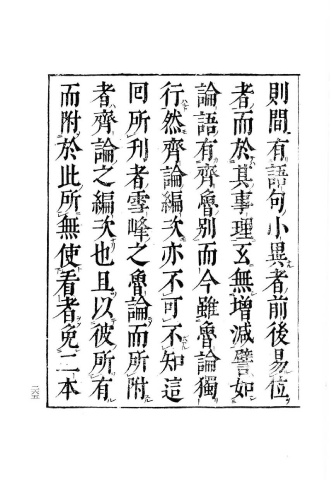 則間有語句小異者前後易位
者而於其事理玄無增減譬如
論語有齊魯別而今雖魯論獨
行然齊論編次亦不可不知這
回所刊者雪峰之魯論而所附
者齊論之編次也且以彼所有
而附於此所無使看者免二本
二六五